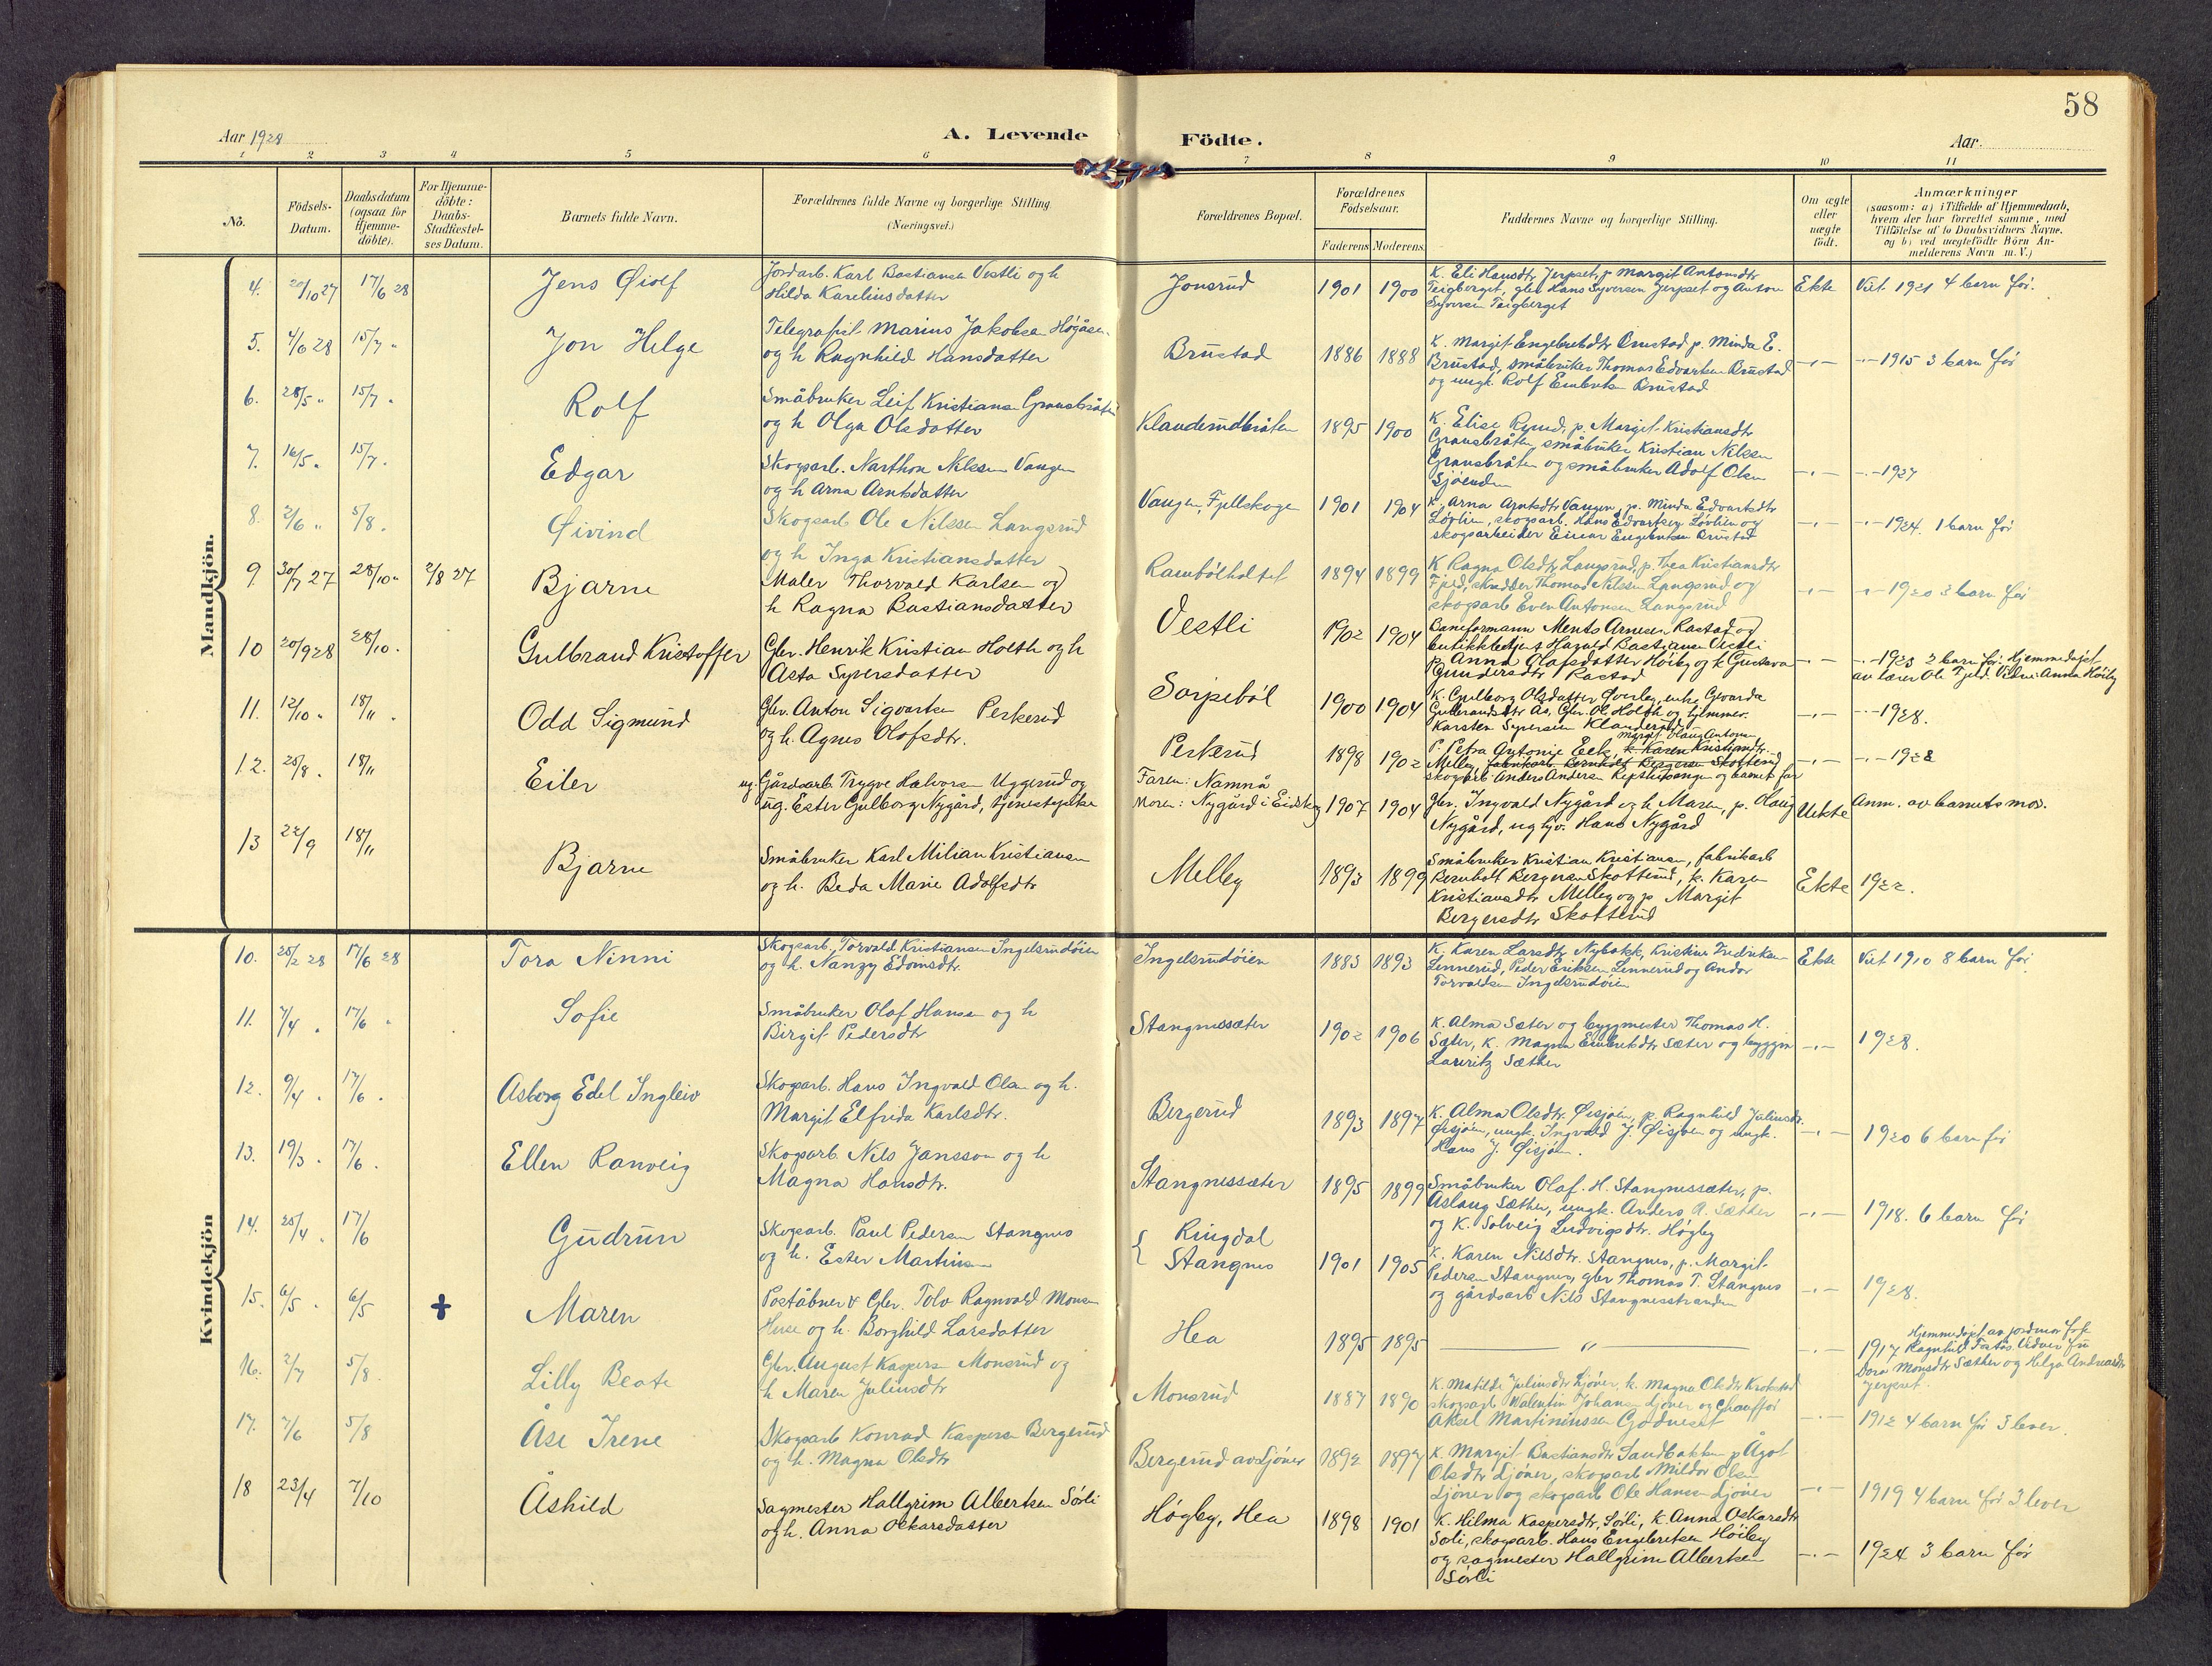 58
Aar 1928
A. Levende Födte.
Aar
1 2 3 4 5 6 7 8 9 10 11
No.
Födsels-Datum.
Daabsdatum (ogsaa for Hjemme-döbte).
For Hjemme-döbte: Daabs-Stadfæstel-ses Datum.
Barnets fulde Navn.
Forældrenes fulde Navne og borgerlige Stilling (Næringsvei.)
Forældrenes Bopæl.
Forældrenes Födselsaar.
Faderens Moderens
Faddernes Navne og borgerlige Stilling.
Om ægte eller uægte födt.
Anmærkninger
(saasom: a) i Tilfælde af Hjemmedaab,
hvem der har forrettet samme, med
Tilföielse af to Daabsvidners Navne.
og b) ved uægtefödte Börn An-
melderens Navn m. V.)
Mandkjön.
4. 20/10 27 17/6 28 Jens Øiolf
Jordarb. Karl Bastiansen Vestli og h
Hilda Karelius datter
Jonsrud 1901 1900
K. Eli Hansdtr Jerpset, p Margit Antonsdtr
Teigberget, gbr. Hans Syversen Jerpset og Anton
Syversen Teigberget
Ekte Viet 1921 4 barn før.
5. 4/6 28 15/7 „ Jon Helge
Telegrafist Marius Jakobsen Høgåsen
og h Ragnhild Hansdatter
Brustad 1886 1888
K. Margit Engebretsdtr Brustad p. Minda E.
Brustad, småbruker Thomas Edvartsen Brustad
og ungk. Rolf Embretsen Brustad
-„- -„- 1915 3 barn før
6. 28/5 „ 15/7 „ Rolf
Småbruker Leif Kristiansen Gransbråten
og h Olga Olsdatter
Klauderudbråten 1895 1900
K. Elise Ryrud, p. Margit Kristiansdtr
Gransbråten, småbruker Kristian Nilsen
Gransbråten og småbruker Adolf Olsen
Sjøenden
-„- -„- 1927
7. 16/5 „ 15/7 „ Edgar
Skogsarb. Narthon Nilssen Vangen
og h Arna Arntsdatter
Vangen, Fjellskogen 1901 1904
K. Arna Arntsdtr Vangen, p. Minda Edvartsdtr
Løvlien, skogsarb. Hans Edvartsen Løvlien og
skogsarbeider Einar Engebretsen Brustad
-„- -„- 1924. 1 barn før
8. 2/6 „ 5/8 „ Øivind
Skogsarb Ole Nilssen Langsrud
og h Inga Kristiansdatter
Rambølholtet 1894 1899
K Ragna Olsdtr Langsrud, p. Thea Kristiansdtr
Fjeld, skrædder Thomas Nilssen Langsrud og
skogsarb Even Antonsen Langsrud
-„- -„- 1920 3 barn før
9. 30/7 27 28/10 „ 2/8 27 Bjarne
Maler Thorvald Karlsen og
h Ragna Bastiansdatter
Vestli 1902 1904
Baneformann Ments Arnesen Rastad og
butikkbetjent Harald Bastiansen Vestli
p Anna Olafsdatter Høiby og k Gustava
Gundersdtr Rastad
-„- -„- 1923 2 barn før. Hjemmedøpt
av lærer Ole Fjeld. Vidne: Anna Høiby
10 20/9 28 28/10 „ Gulbrand Kristoffer
Gbr. Henrik Kristian Holth og h
Asta Syversdatter
Sorpebøl 1900 1904
K. Gulborg Olsdatter Overby, enke Gevarda
Gulbrandsdtr Ås, Gbr. Ole Holth og hjemmev.
Karsten Syversen Klauderud
-„- -„- 1928.
11. 12/10 „ 18/11 „ Odd Sigmund
Gbr. Anton Sigvartsen Perkerud
og h. Agnes Olafsdtr.
Perkerud 1898 1902
Margit Olaug Antonsen
P. Petra Antonie Eek, k Karen Kristiansdtr.
Melleg, fabrikarb Bernholt Bergersen Skotterud
skogsarb Anders Andersen Repshusvangen og barnets far
-„- -„- 1928
12. 25/8 „ 18/11 Eiler
ug. Gårdsarb Trygve Halvorsen Uggerud og
ug. Ester Gulborg Nygård, tjenestepike
Faren: Namnå
Moren: Nygård i Eidskog 1907 1904
Gbr. Ingvald Nygård og h Maren, p. Olaug
Nygård, ug hjv. Hans Nygård
Uekte Anm. av barnets mor.
13 22/9 18/11 Bjarne
Småbruker Karl Milian Kristiansen
og h. Beda Marie Adolfsdtr
Melleg 1893 1899
Småbruker Kristian Kristiansen, fabrikarb
Bernholt Bergersen Skotterud, k. Karen
Kristiansdtr Melleg og p Margit
Bergersdtr Skotterud
Ekte 1922.
Kvindekjön
10. 25/2 28 17/6 28 Tora Ninni
Skogsarb. Torvald Kristiansen Ingelsrudøien
og h. Nanzy Edvinsdtr.
Ingelsrudøien 1883 1893
K. Karen Larsdtr Nybakk, Kristine Fredriksen
Linnerud, Peder Eriksen Linnerud og Andor
Torvaldsen Ingelsrudøien
Ekte Viet 1910 8 barn før
11. 7/4 „ 17/6 „ Sofie
Småbruker Olaf Hansen og h
Birgit Pedersdtr
Stangnessæter 1902 1906
K. Alma Sæter og byggmester Thomas H.
Sæter, K. Magna Embretsdtr Sæter og byggm
Lauritz Sæther
-„- 1928.
12. 9/4 „ 17/6 „ Asborg Edel Ingleiv
Skogsarb. Hans Ingvald Olsen og h.
Margit Elfrida Karlsdtr.
Bergerud 1893 1897
K. Alma Olsdtr. Øisjøen, p. Ragnhild Juliusdtr.
Øisjøen, ungk. Ingvald J. Øisjøen og ungk.
Hans J. Øisjøen.
-„- 1920 6 barn før
13. 19/3 „ 17/6 „ Ellen Ranveig
Skogsarb. Nils Jansson og h
Magna Hansdtr.
Stangnessæter 1895 1899
Småbruker Olaf. H. Stangnessæter, p.
Aslaug Sæther, ungk. Anders A. Sæther
og K. Solveig Ludvigsdtr. Høgby
-„- 1918. 6 barn før
14. 25/4 „ 17/6 Gudrun
Skogsarb. Paul Pedersen Stangnes
og h. Ester Martinsen
{ Ringdal
Stangnes 1901 1905
K. Karen Nilsdtr. Stangnes, p. Margit
Pedersen Stangnes, gbr Thomas T. Stangnes
og gårdsarb Nils Stangnesstranden
-„- 1928.
15. 6/5 „ 6/5 + Maren
Poståbner & Gbr. Tolv Ragnvald Monsen
Huse og h. Borghild Larsdatter
Hea 1895 1895
„
-„- 1917 Hjemmedøpt av jordmor frk
Ragnhild Fostås. Vidner fru
Dora Monsdtr Sæther og Helga Andreasdtr
Jerpset.
16. 2/7 5/8 Lilly Beate
Gbr. August Kaspersen Monsrud og
h Maren Juliusdtr
Monsrud 1887 1890
K. Matilde Juliusdtr Ljøner, k. Magna Olsdtr Krokstad
skogsarb Valentin Johansen Ljøner og chauffør
Aksel Martiniussen Godneset
-„- 1912 4 barn før 3 lever.
17. 7/6 5/8 Åse Irene
Skogsarb Konrad Kaspersen Bergerud
og h. Magna Olsdtr
Bergerud av Ljøner 1892 1897
K. Margit Bastiansdtr Sandbakken p Ågot
Olsdtr Ljøner, skogsarb Mildor Olsen
Ljøner og skogsarb Ole Hansen Ljøner
-„- 1919 4 barn før 3 lever
18 23/4 7/10 Åshild
Sagmester Hallgrim Albertsen Sørli
og h. Anna Oskarsdatter
Høgby, Hea 1898 1901
K. Hilma Kaspersdtr, Sørli, k. Anna Oskarsdtr
Sørli, skogsarb. Hans Engebretsen Høiby
og sagmester Hallgrim Albertsen
Sørli
-„- 1924 3 barn før